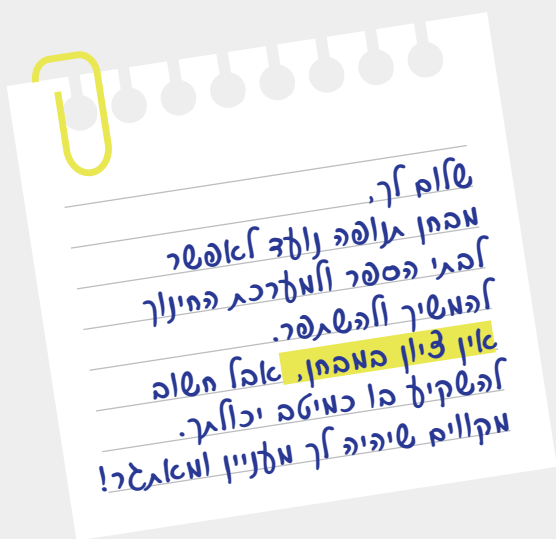 שלום לך,
מבחן תנופה נועד לאפשר
לבתי הספר ולמערכת החינוך
להמשיך ולהשתפר.
אין ציון במבחן, אבל חשוב
להשקיע בו כמיטב יכולתך.
מקווים שיהיה לך מעניין ומאתגר!